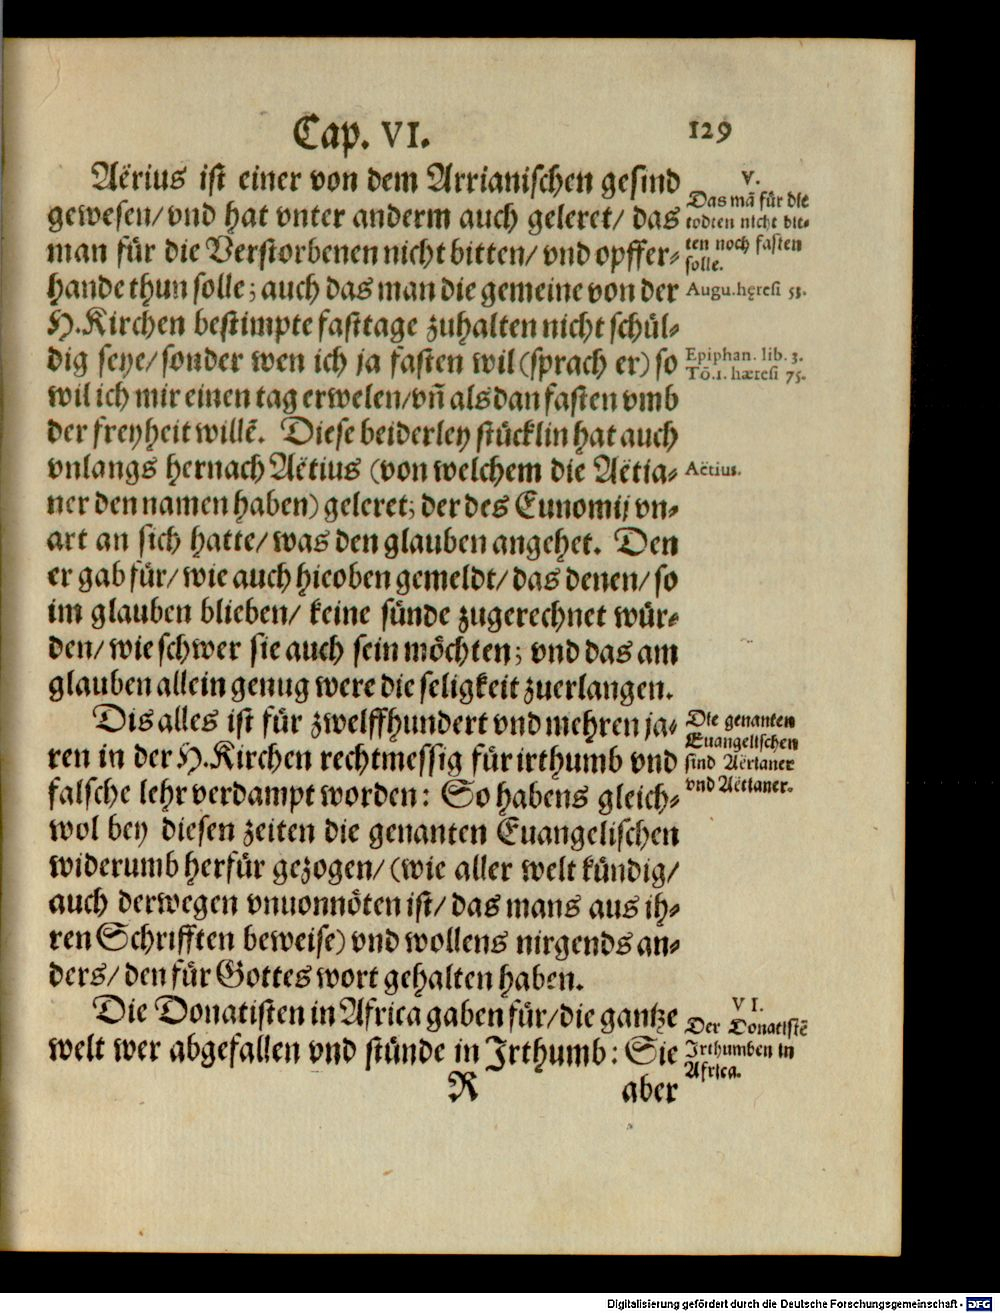 Cap. VI. 129
Aërius ist einer von dem Arrianischen gesind
gewesen/ vnd hat vnter anderm auch geleret/ das
man für die Verstorbenen nicht bitten/ vnd opffer⸗
hande thun solle; auch das man die gemeine von der
H. Kirchen bestimpte fasttage zuhalten nicht schül⸗
dig seye/ sonder wen ich ja fasten wil (sprach er) so
wil ich mir einen tag erwelen/ vñ als dan fasten vmb
der freyheit willẽ. Diese beiderley stücklin hat auch
vnlangs hernach Aëtius (von welchem die Aëtia⸗
ner den namen haben) geleret; der des Eunomij vn⸗
art an sich hatte/ was den glauben angehet. Den
er gab für/ wie auch hieoben gemeldt/ das denen/ so
im glauben blieben/ keine sünde zugerechnet wür⸗
den/ wie schwer sie auch sein möchten; vnd das am
glauben allein genug were die seligkeit zuerlangen.
Dis alles ist für zwelffhundert vnd mehren ja⸗
ren in der H. Kirchen rechtmessig für irthumb vnd
falsche lehr verdampt worden: So habens gleich⸗
wol bey diesen zeiten die genanten Euangelischen
widerumb herfür gezogen/ (wie aller welt kündig/
auch derwegen vnuonnöten ist/ das mans aus ih⸗
ren Schrifften beweise) vnd wollens nirgends an⸗
ders/ den für Gottes wort gehalten haben.
Die Donatisten in Africa gaben für/ die gantze
welt wer abgefallen vnd stünde in Irthumb: Sie
R aber
V.
Das mã für die
todten nicht bit⸗
ten noch fasten
solle.
Augu. hęresi 53.
Epiphan. lib. 3.
Tõ. 1. hæresi 75.
Aëtius.
Die genanten
Euangelischen
sind Aërianer
vnd Aëtianer.
VI.
Der Donatistẽ
Irthumben in
Africa.
Digitalisierung gefördert durch die Deutsche Forschungsgemeinschaft - DFG